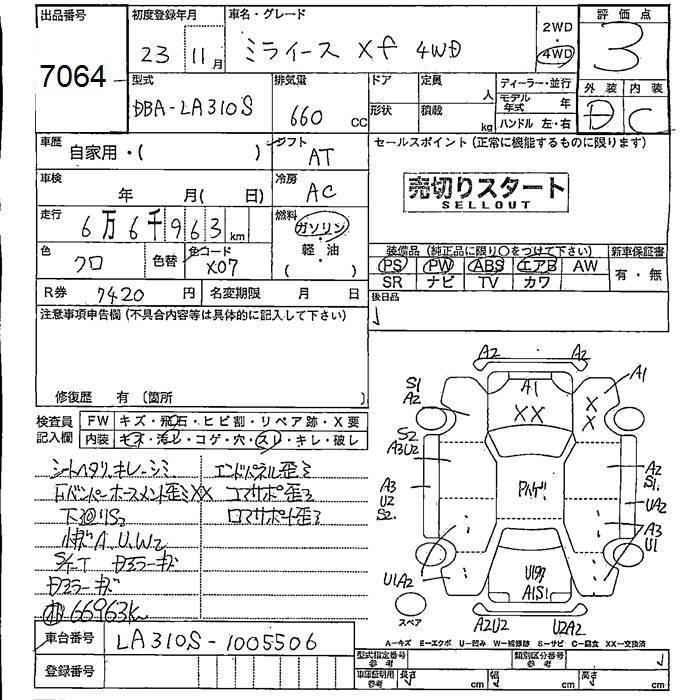 出品番号
7064
初度登録年月
23 11月
車名・グレード
ミライース Xf 4WD
2WD
・
4WD
評価点
3
外装 内装
D C
型式
DBA-LA310S
排気量
660 cc
ドア
定員
人
形状
積載
kg
ディーラー・並行
モデル年式 年
ハンドル 左・右
車歴
自家用・( )
シフト
AT
車検
年 月( 日)
冷房
AC
走行
6万6千963km
燃料
ガソリン
・
軽・油
( )
色
クロ
色替
色コード
X07
R券 7420円
名変期限 月 日
セールスポイント(正常に機能するものに限ります)
売切りスタート
SELLOUT
装備品(純正品に限り○をつけて下さい)
PS PW ABS エアB AW
SR ナビ TV カワ
新車保証書
有・無
後日品
注意事項申告欄(不具合内容等は具体的に記入して下さい)
修復歴 有 〔箇所 〕
検査員記入欄
FW キズ・飛石・ヒビ割・リペア跡・X要
内装 キズ・汚レ・コゲ・穴・スレ・キレ・破レ
シートヘタリ、キレ、シミ
エンドパネル歪ミ
コアサポ歪ミ
下廻りS2
内装A、U、W2
66963km
車台番号 LA310S-1005506
登録番号
A2 A2
A1
XX
A1
X
X
S1
A2
S2
A3U2
A3
U2
S2
A2
S1
UA2
A3
U1
U1A2
A1S1
A2U2 U2A2
スペア
A-キズ E-エクボ U-凹み W-補修跡 S-サビ C-腐食 XX-交換済
型式指定番号
参考
類別区分番号
参考
車庫証明用
参考
長さ cm
幅 cm
高さ cm